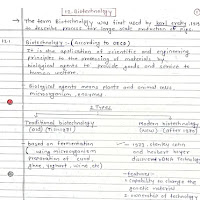 12. Biotechnology
→ The term Biotechnology was first used by karl ereky, 1919
to describe process for large scale production of pigs.
12.1 Biotechnology :- (According to OECD)
It is the application of scientific and engineering
principles to the processing of materials by
biological agents to provide goods and service to
human welfare.
Biological agents means plants and animal cells
microorganism, enzymes.
2 TYPES
Traditional biotechnology Modern biotechnology
(old) (New) (after 1970)
- based on fermentation - 1973, stenley cohn
using microorganism and herbert boyer
preparation of curd, discovered rDNA technology
ghee, yoghurt, wine etc
- features :-
capability to change the
genetic material
ownership of technology